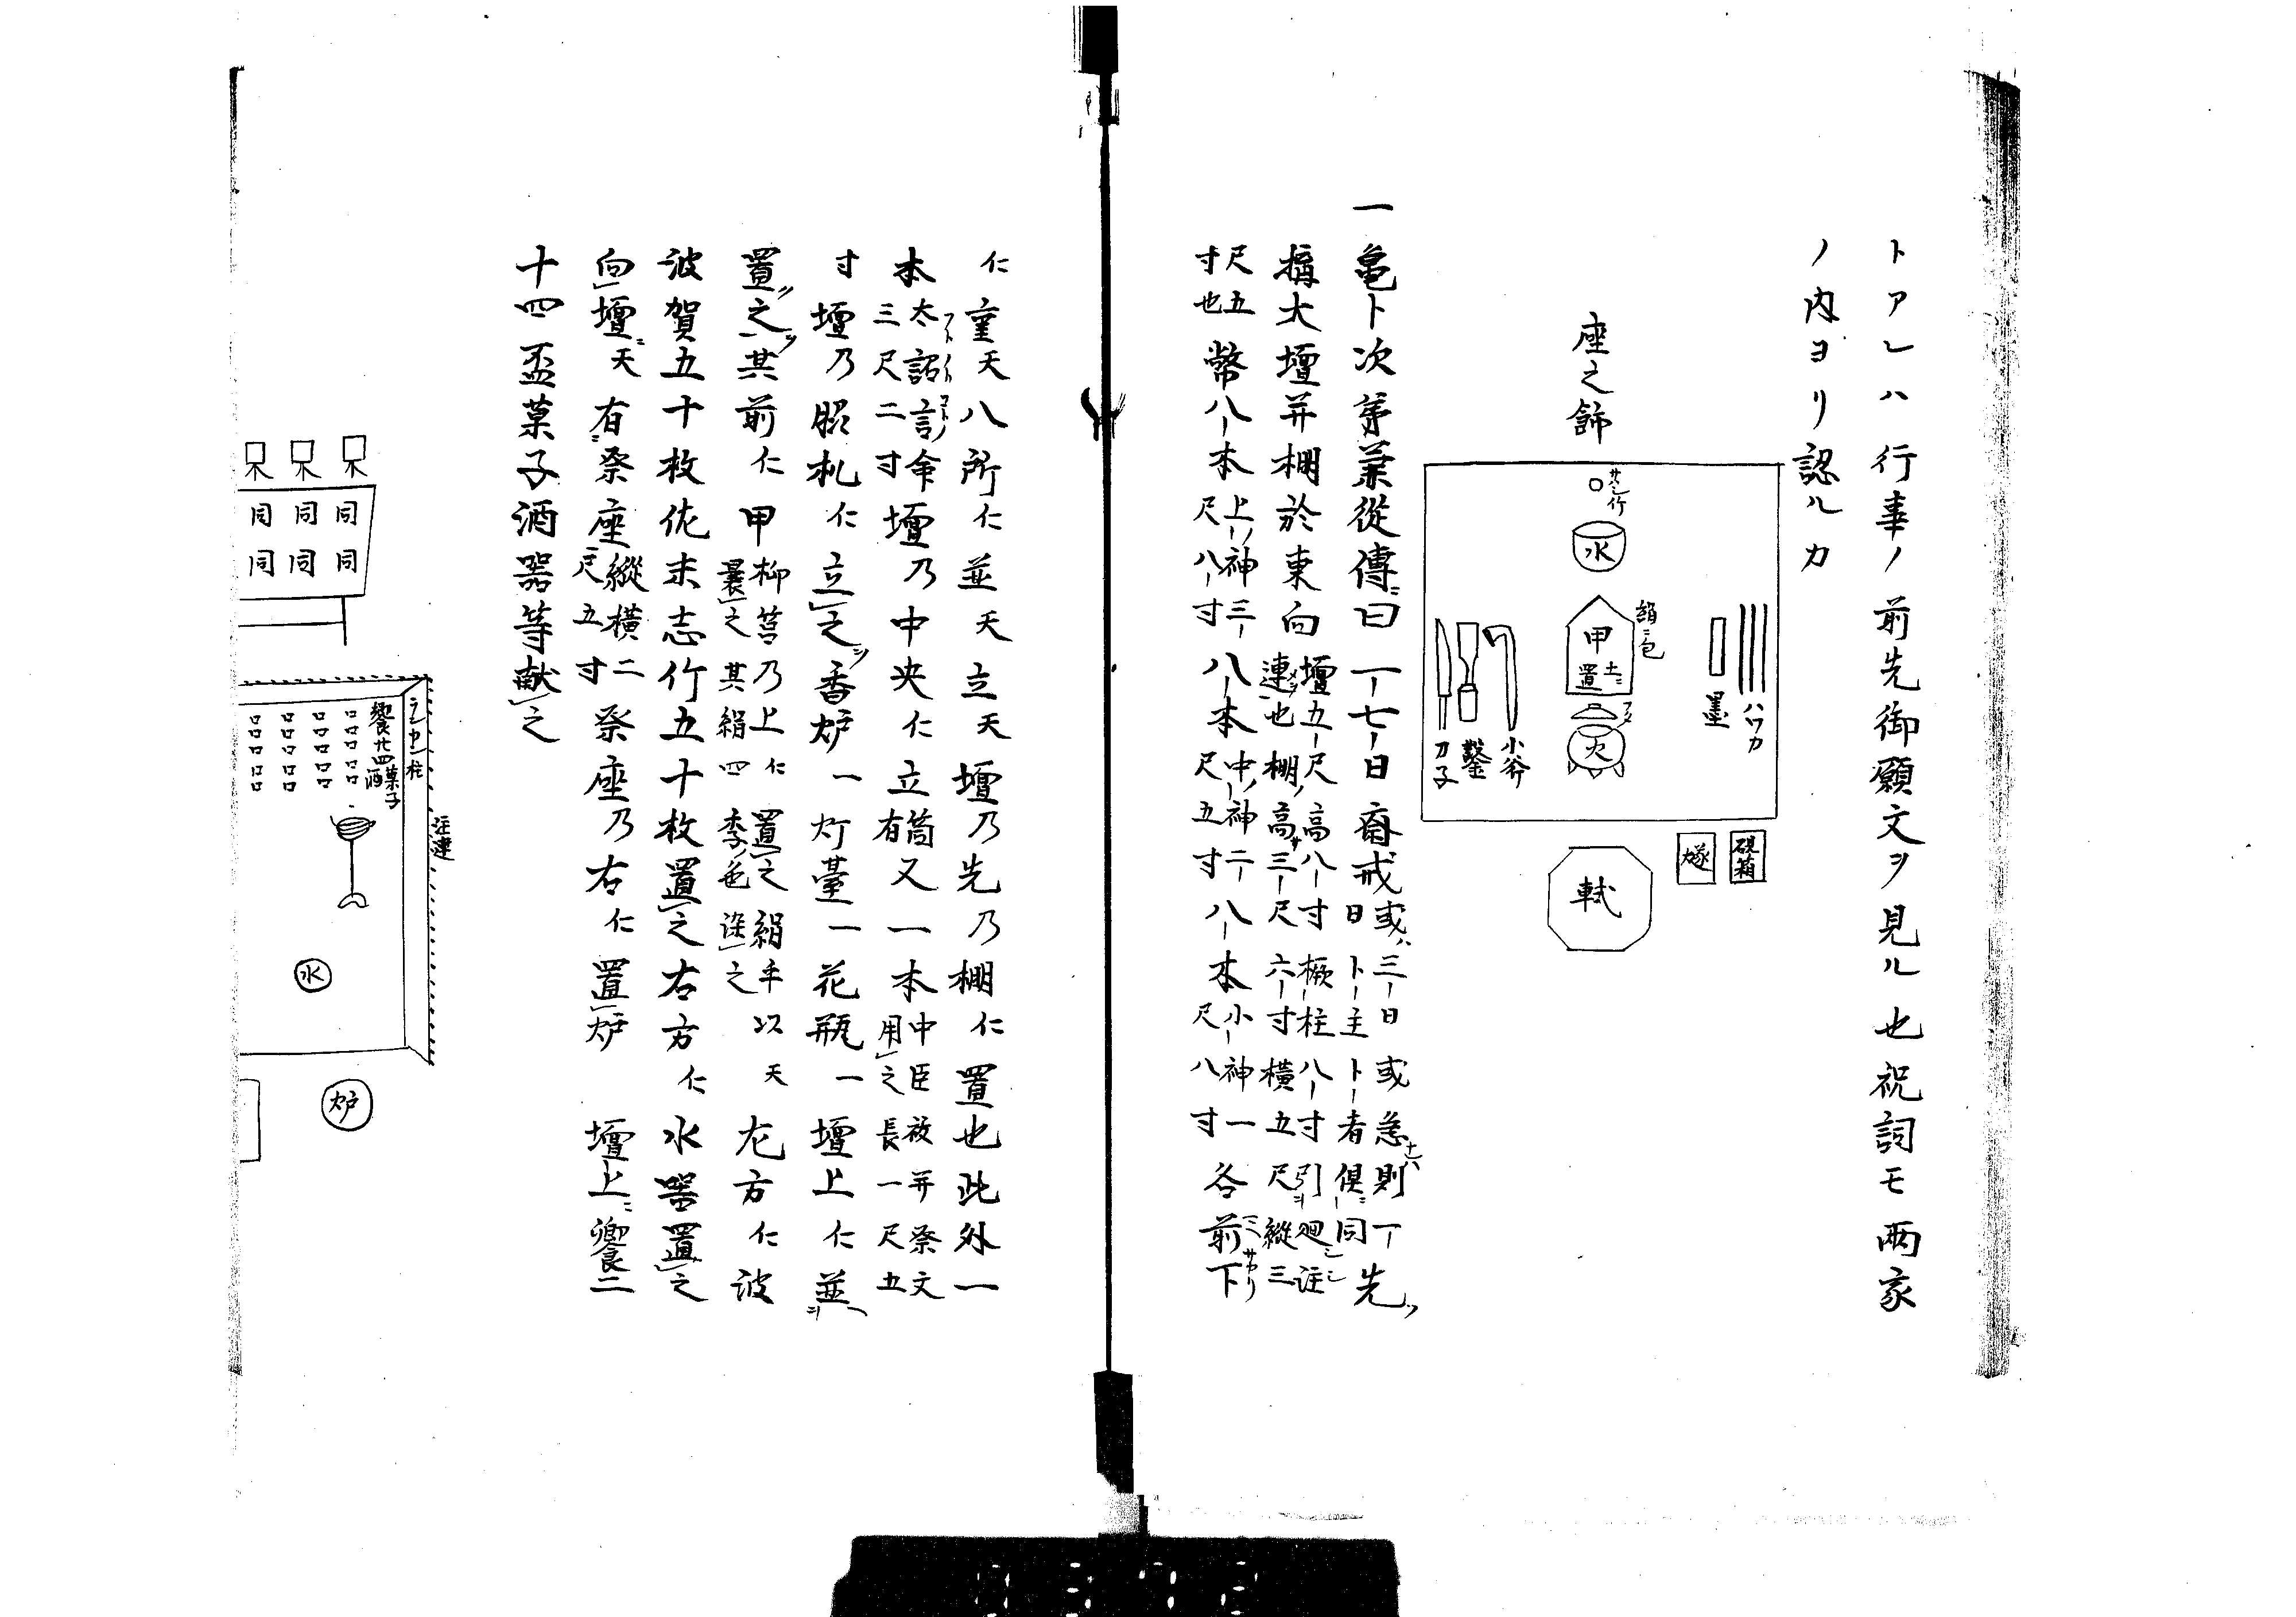 トアレハ行事ノ前先御願文ヲ見ル也祝詞モ両家
ノ内ヨリ認ルカ
座之飾
サマシ竹
水
絹ニ包
甲
土ニ置
フタ
火
ハワカ
墨
小斧
鑿
刀子
硯箱
燧
軾
一亀卜次第葉従傳ニ曰一七日齋戒或ハ三日或急ナハ則一日卜主卜者倶ニ同シ先ツ
搆大壇并棚於東向壇五尺高八寸橛柱八寸引廻シ注連也棚ノ高サ三尺六寸横五尺縦三
尺五寸也幣八本上ノ神三尺八寸八本中ノ神二尺五寸八本小神一尺八寸各前下サカリ
仁重天八所仁並天立天壇乃先乃棚仁置也此外一
本太詔言命三尺二寸壇乃中央仁立筒有又一本中臣祓并祭文用之長一尺五
寸壇乃脇札仁立之香炉一灯臺一花瓶一壇上仁並
置之其前仁甲柳筥乃上仁置之絹半以天曩之其絹四季ノ色染之左方仁波
波賀五十枚佐末志竹五十枚置之右方仁水器置之
向壇ニ天有祭座縦横二尺五寸祭座乃右仁置炉 壇上ニ饗二
十四盃菓子酒器等献之
同 同 同
同 同 同
饗廿四菓子酒
柱
注連
水
炉